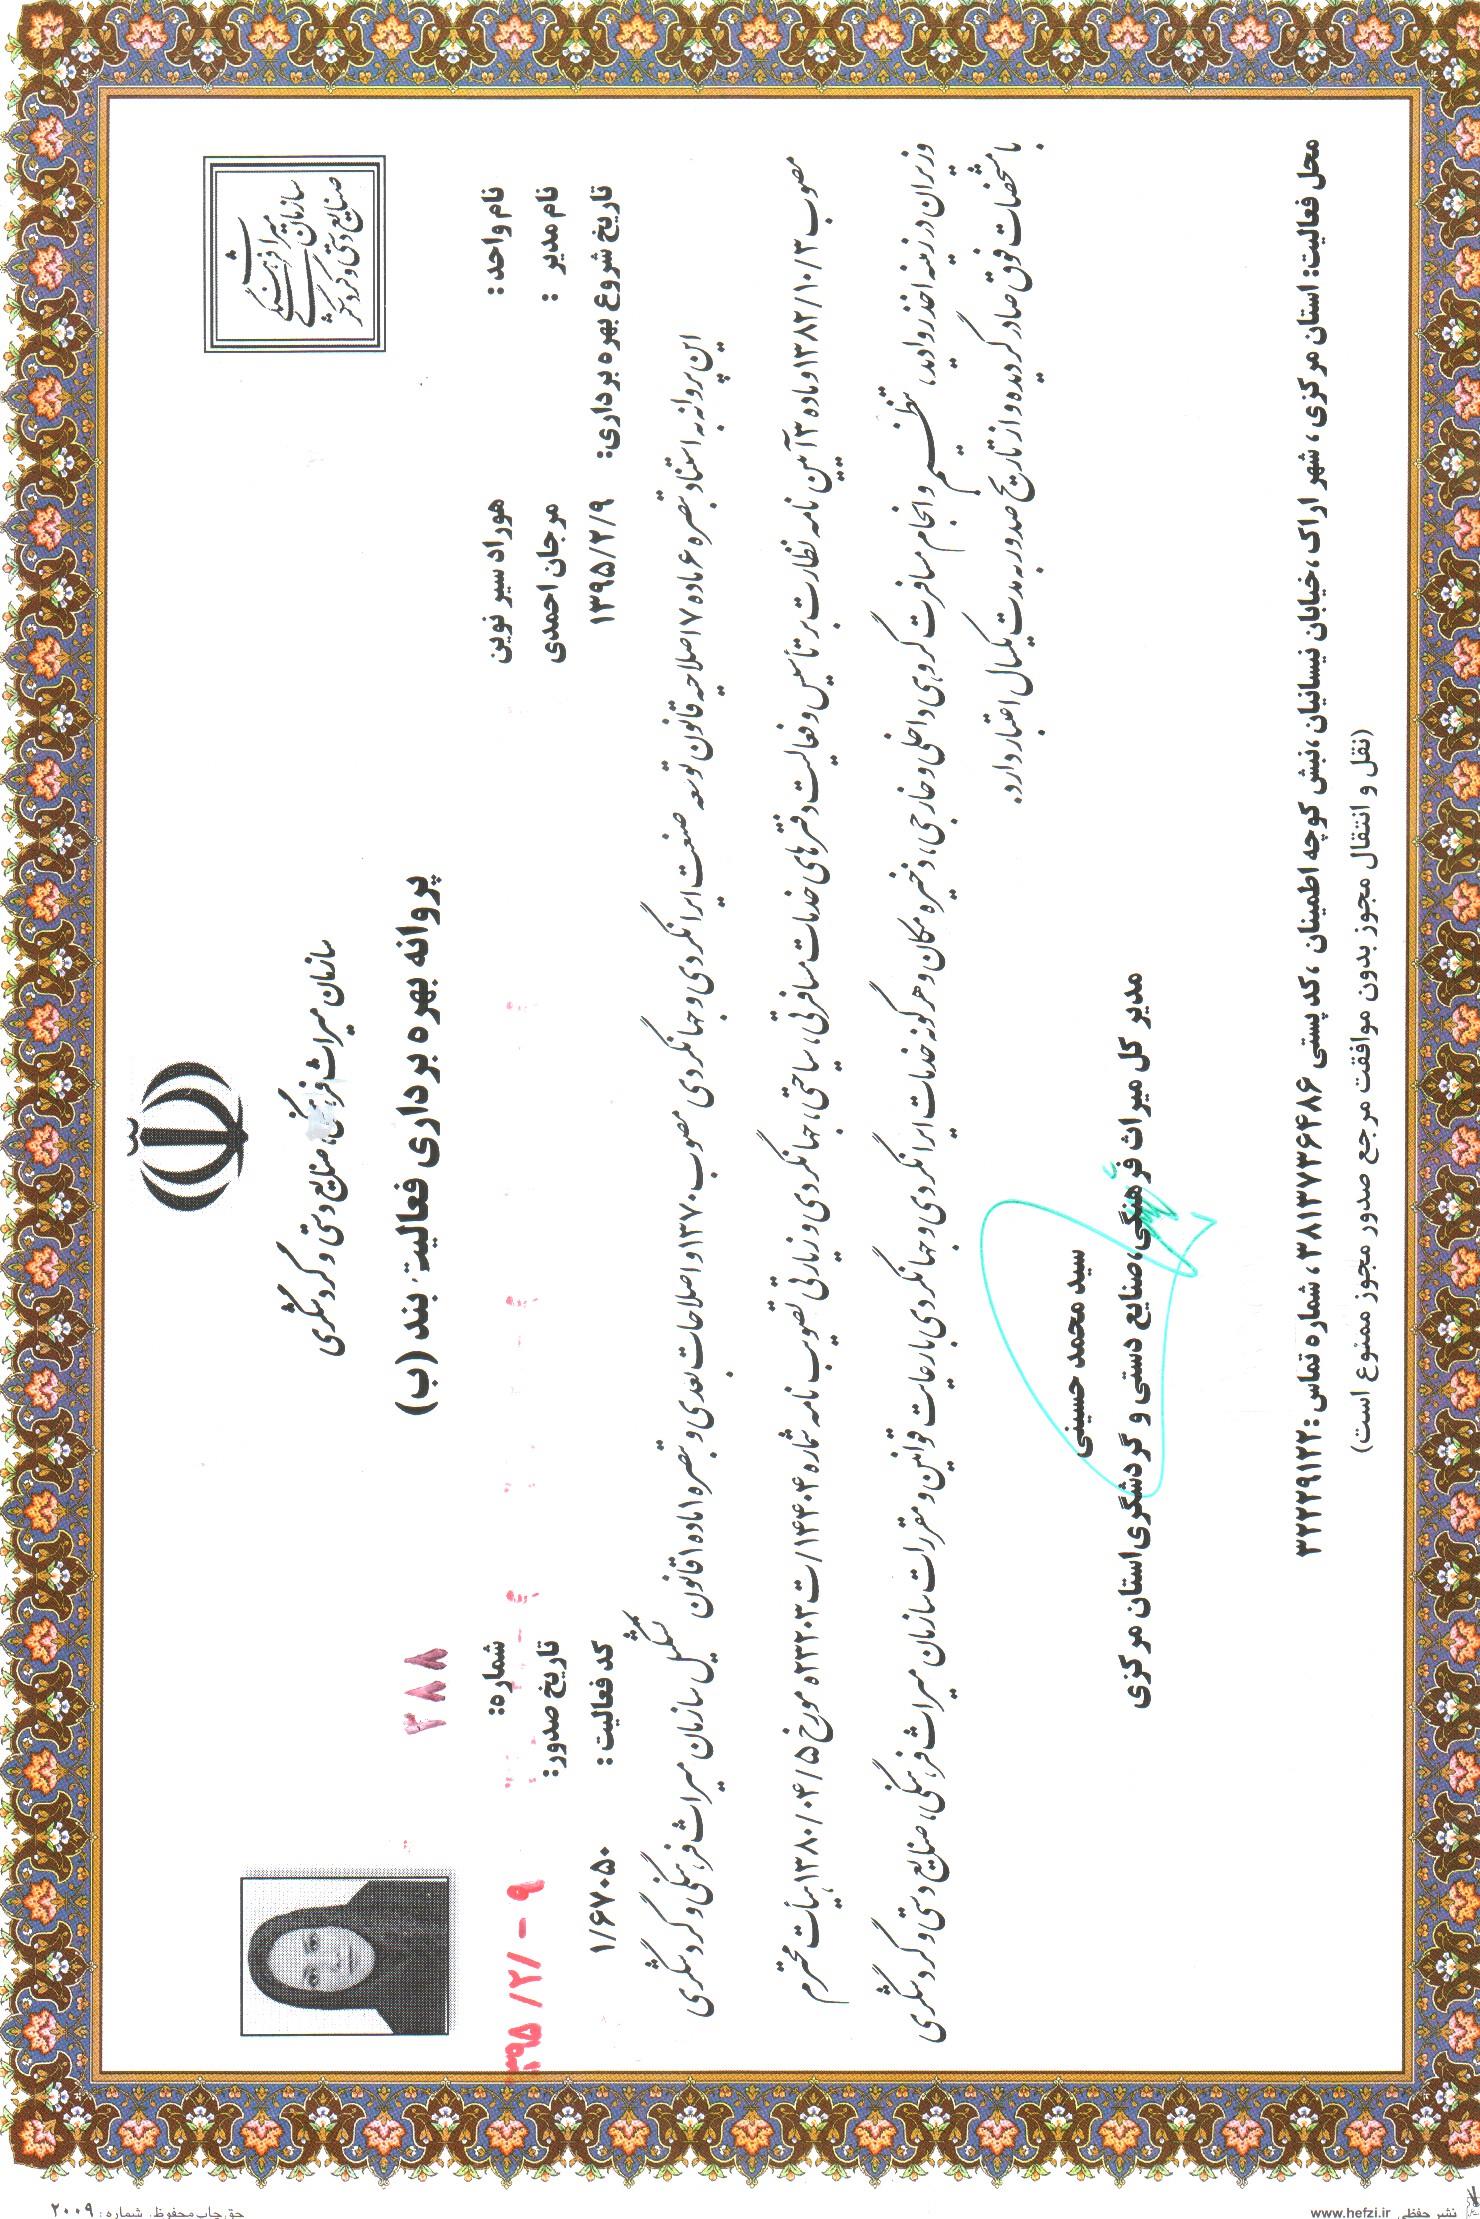 سازمان میراث فرهنگی
صنایع دستی و گردشگری
سازمان میراث فرهنگی، صنایع دستی و گردشگری
پروانه بهره برداری فعالیت بند (ب)
۲۸۸
نام واحد: هوراد سیر نوین
شماره:
نام مدیر : مرجان احمدی
تاریخ صدور: ۳۹۵/۲/-۹
تاریخ شروع بهره برداری: ۱۳۹۵/۲/۹
کد فعالیت : ۱/۶۷۰۵۰
این پروانه به استناد تبصره ۶ ماده ۷ اصلاحیه قانون توسعه صنعت ایرانگردی و جهانگردی مصوب ۱۳۷۰ و اصلاحات بعدی و تبصره ۱ ماده ۱ قانون تشکیل سازمان میراث فرهنگی و گردشگری
مصوب ۱۳۸۲/۱۰/۳ و ماده ۳ آیین نامه نظارت بر تأسیس و فعالیت دفترهای خدمات مسافرتی، سیاحتی، جهانگردی و زیارتی تصویب نامه شماره ۱۴۴۰۴/ت ۲۳۲۰۳ ه مورخ ۱۳۸۰/۰۴/۵ هیأت محترم
وزیران در زمینه اخذ روادید، تنظیم و انجام مسافرت گروهی داخلی و خارجی، ذخیره مکان و هرگونه خدمات ایرانگردی و جهانگردی با رعایت قوانین و مقررات سازمان میراث فرهنگی، صنایع دستی و گردشگری
با مشخصات فوق صادر گردیده و از تاریخ صدور به مدت یکسال اعتبار دارد.
سید محمد حسینی
مدیر کل میراث فرهنگی، صنایع دستی و گردشگری استان مرکزی
محل فعالیت: استان مرکزی ، شهر اراک ،خیابان نیسانیان ،نبش کوچه اطمینان ،کد پستی ۳۸۱۳۷۳۶۴۸۶ ، شماره تماس :۳۲۲۲۹۱۲۲
(نقل و انتقال مجوز بدون موافقت مرجع صدور مجوز ممنوع است)
نشر حفظی www.hefzi.ir
حق چاپ محفوظ. شماره: ۲۰۰۹